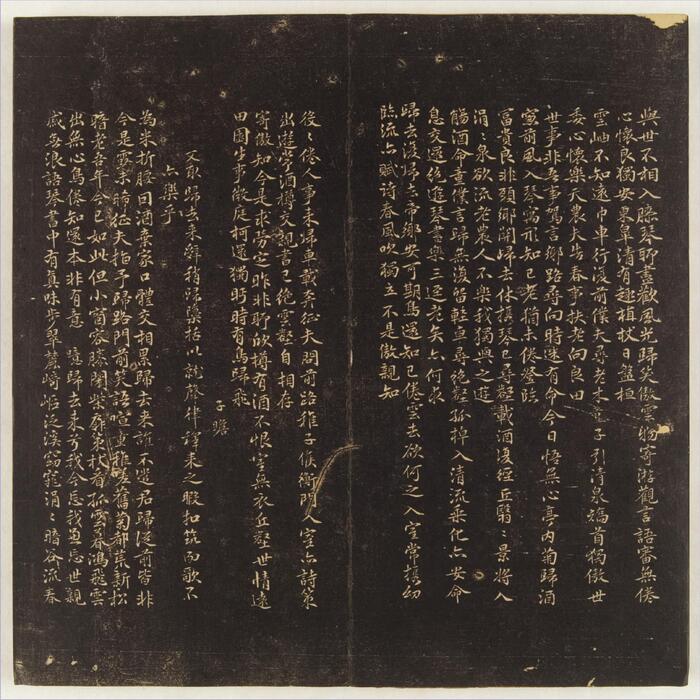 與世不相入膝琴聊盡歡風光歸笑傲雲物寄游觀言語審無倦
心懷良獨安東皐清有趣植杖日盤桓
雲岫不知遠巾車行復前僕夫尋老木童子引清泉矯首獨傲世
委心懷樂天農夫告春事扶老向良田
世事非吾事駕言鄉路尋向時迷有命今日悟無心亭內菊歸酒
窗前風入琴寓形知已老猶未倦登臨
富貴良非願鄉關歸去休携琴已尋壑載酒復經丘翳〻景將入
涓〻泉欲流老農人不樂我獨與之遊
觴酒命童僕言歸無復留輕車尋絶壑孤棹入清流乘化亦安命
息交還絶遊琴書樂三逕老矣亦何求
歸去復歸去帝鄉安可期鳥還知已倦雲去欲何之入室常携幼
臨流亦賦詩春風吹獨立不是傲親知
役〻倦人事來歸車載奔征夫問前路稚子候衡門入室亦詩策
出遊常酒樽交親書已絶雲壑自相存
寄傲知今是求勞定昨非聊欣樽有酒不恨室無衣丘壑世情遠
田園生事微庭柯還獨眄時有鳥歸飛
子瞻
又取歸去來辭稍歸檃括以就聲律釋耒之暇扣而歌不
亦樂乎
為米折腰因酒棄家口體交相累歸去來誰不遣君歸從前皆非
今是露未晞征夫指予歸路門前笑語喧童稚嗟舊菊都荒新松
暗老吾年今已如此但小窗容膝閉柴扉策杖看孤雲暮鴻飛雲
出無心鳥倦知還本非有意 噫歸去來兮我今忘我兼忘世親
戚無浪語琴書中有真味步翠麓崎嶇泛溪窈窕涓〻暗谷流春